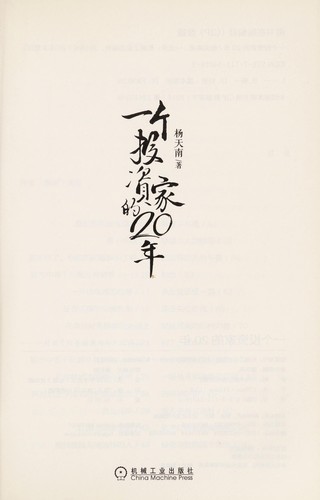 一个投資家的20年
杨天南 著
机械工业出版社
China Machine Press